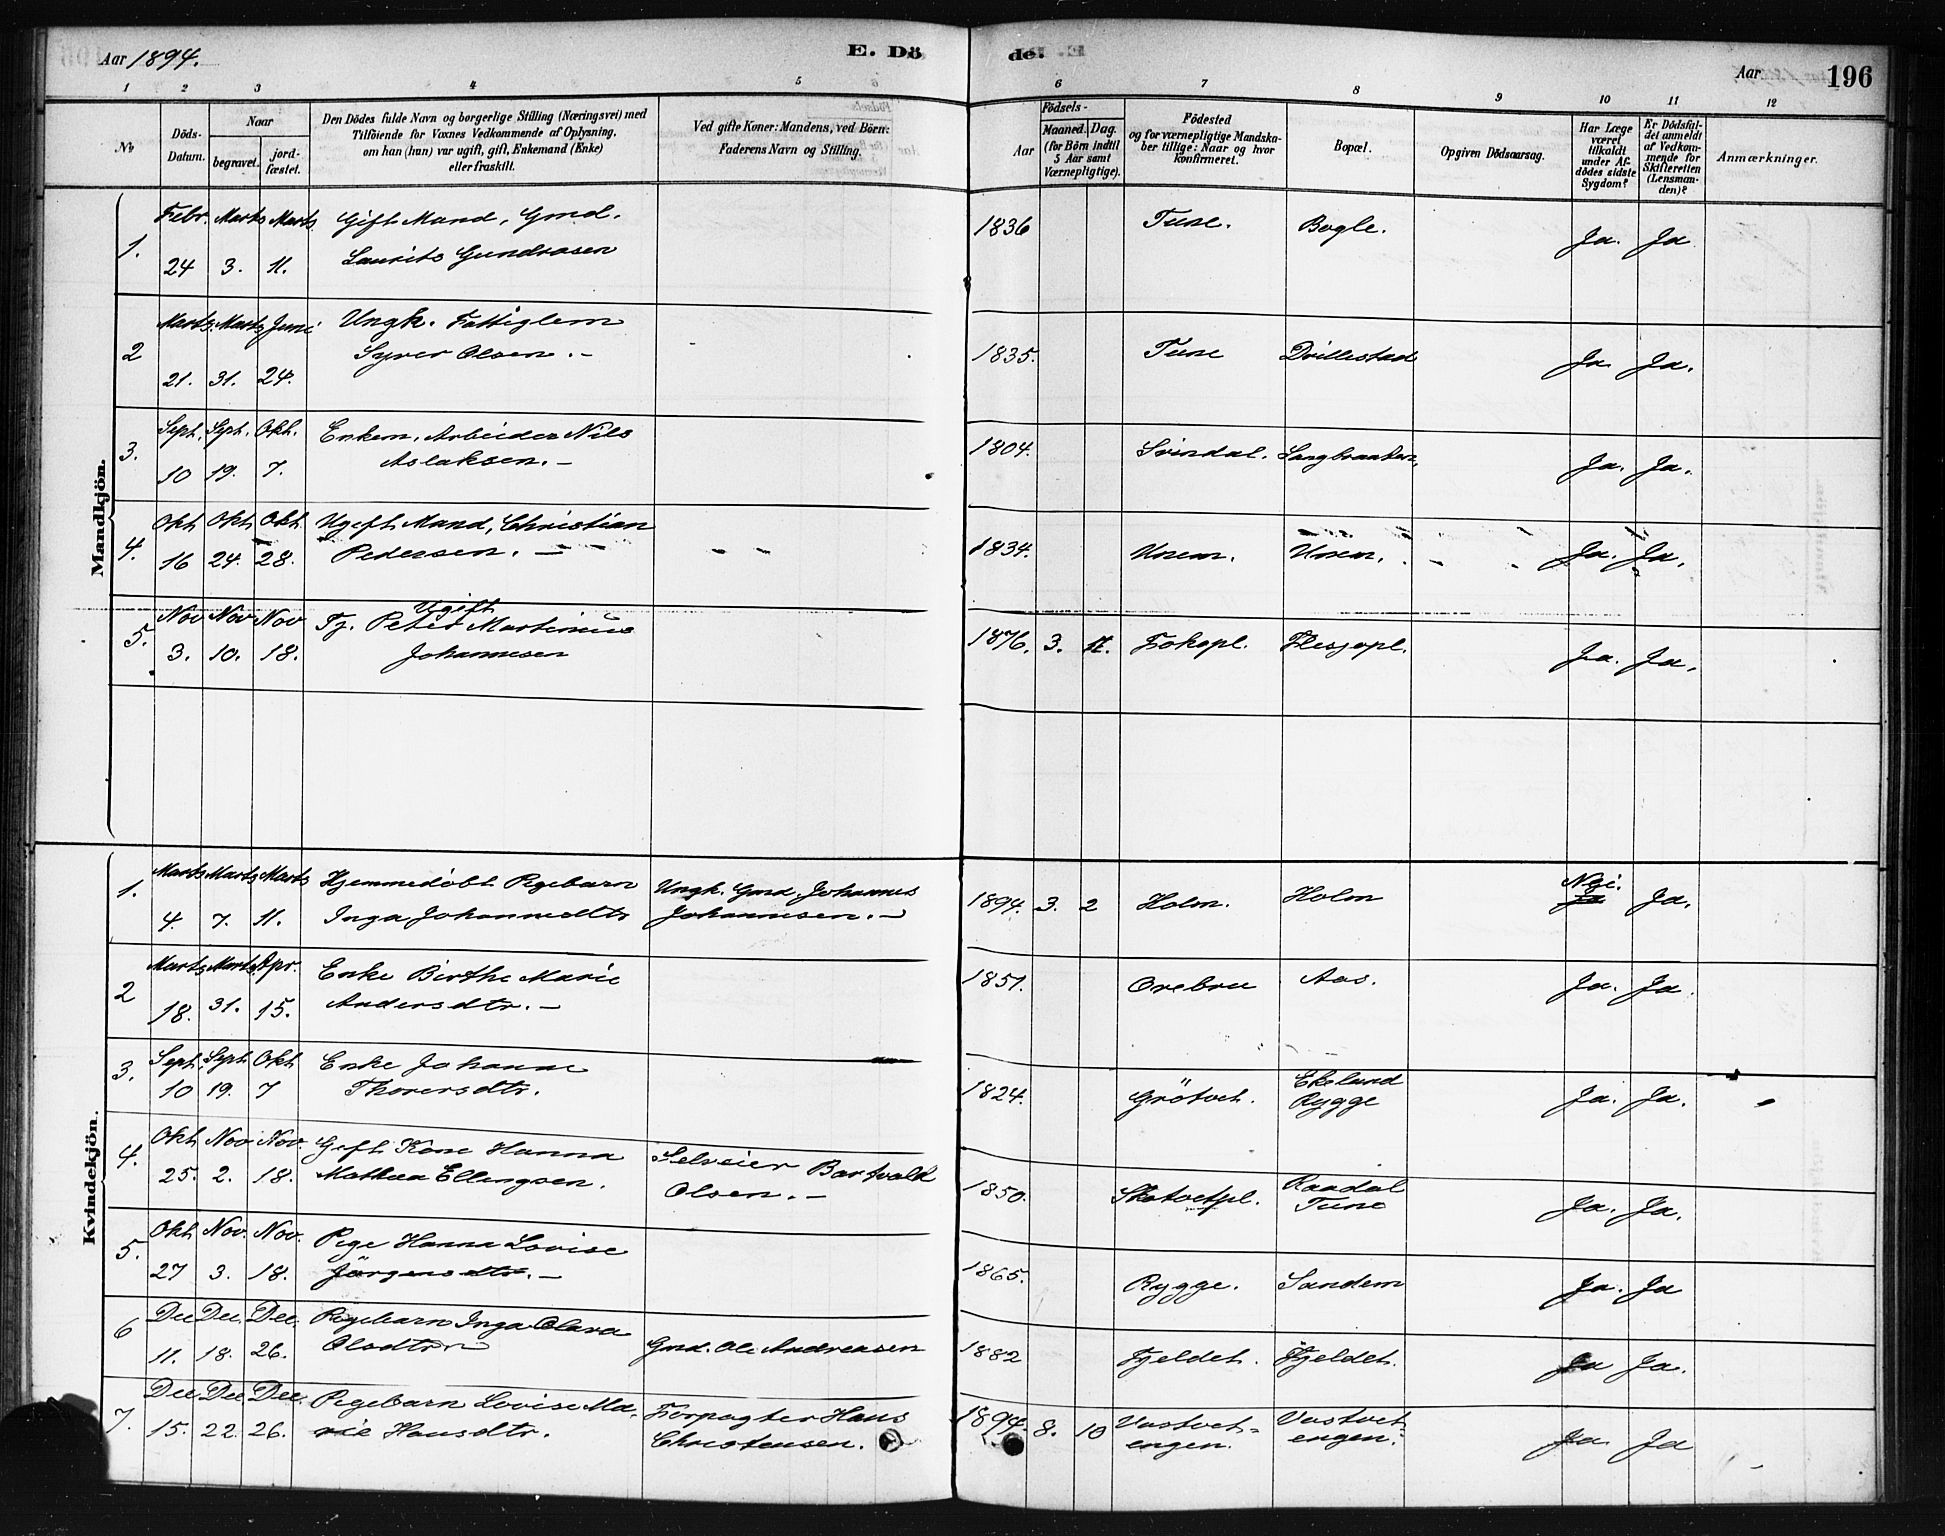 Aar 1894.
E. Dö
de.
Aar
196
1
2
3
4
5
6
7
8
9
10
11
12
No
Döds-
Datum.
Naar
begravet.
jord-
fæstet.
Den Dödes fulde Navn og borgerlige Stilling (Næringsvei) med
Tilföiende for Voxnes Vedkommende af Oplysning,
om han (hun) var ugift, gift, Enkemand (Enke)
eller fraskilt.
Ved gifte Koner: Mandens, ved Börn:
Faderens Navn og Stilling.
Födsels-
Aar
Maaned.
Dag.
(for Börn indtil
5 Aar samt
Værnepligtige).
Födested
og for værnepligtige Mandska-
ber tillige: Naar og hvor
konfirmeret.
Bopæl.
Opgiven Dödsaarsag.
Har Læge
været
tilkaldt
under Af-
dödes sidste
Sygdom?
Er Dödsfal-
det anmeldt
af Vedkom-
mende for
Skifteretten
(Lensman-
den)?
Anmærkninger.
Mandkjön.
1.
Febr. Marts Marts
24 3. 11.
Gift Mand, Gmd.
Laurits Gundrosen
1836
Tune.
Bogle.
Ja. Ja
2
Marts. Marts Juni
21. 31. 24.
Ungk. Fattiglem
Syver Olsen. -
1835.
Tune
Drillestad
Ja Ja.
3.
Sept. Sept. Okt.
10 19. 7.
Enkem. Arbeider Nils
Aslaksen. -
1804.
Svindal.
Langbraaten,
Ja. Ja.
4.
Okt Okt Okt
16 24. 28.
Ugift Mand, Christian
Pedersen. -
1834.
Unem.
Unem.
Ja. Ja.
5.
Nov Nov Nov
3. 10. 18.
Ugift
Tj. Peter Martinius
Johannesen
1876. 3. 11.
Fokspl.
Flesjepl.
Ja. Ja.
Kvindekjön.
1.
Marts Marts Marts
4. 7. 11.
Hjemmedöbt Pigebarn
Inga Johannesdtr
Ungk. Gmd. Johannes
Johannesen. -
1894. 3. 2
Holm.
Holm
Nei.
Ja Ja.
2
Marts Marts Apr.
18. 31. 15.
Enke Birthe Marie
Andersdtr. -
1851.
Orebro
Aas.
Ja. Ja
3.
Sept. Sept. Okt
10 19. 7
Enke Johanne
Thorersdtr.
1824.
Grötvet.
Ekelund
Rygge
Ja. Ja.
4.
Okt Nov Nov.
25. 2. 18.
Gift Kone Hanna
Mathea Ellingsen.
Selveier Bartvald
Olsen. -
1850.
Skotvetpl.
Raadal
Tune
Ja. Ja.
5.
Okt Nov. Nov.
27 3. 18.
Pige Hanna Lovise
Jörgensdtr. -
1865.
Rygge.
Sandem
Ja. Ja
6
Dec Dec. Dec.
11. 18. 26.
Pigebarn Inga Olava
Olsdtr
Gmd. Ole Andreasen
1882
Fjeldet.
Fjeldet.
Ja Ja.
7.
Dec Dec. Dec.
15. 22. 26.
Pigebarn Lovise Ma-
rie Hansdtr.
Forpagter Hans
Christensen.
1894. 8. 10
Vastvet-
engen.
Vastvet
engen.
Ja Ja